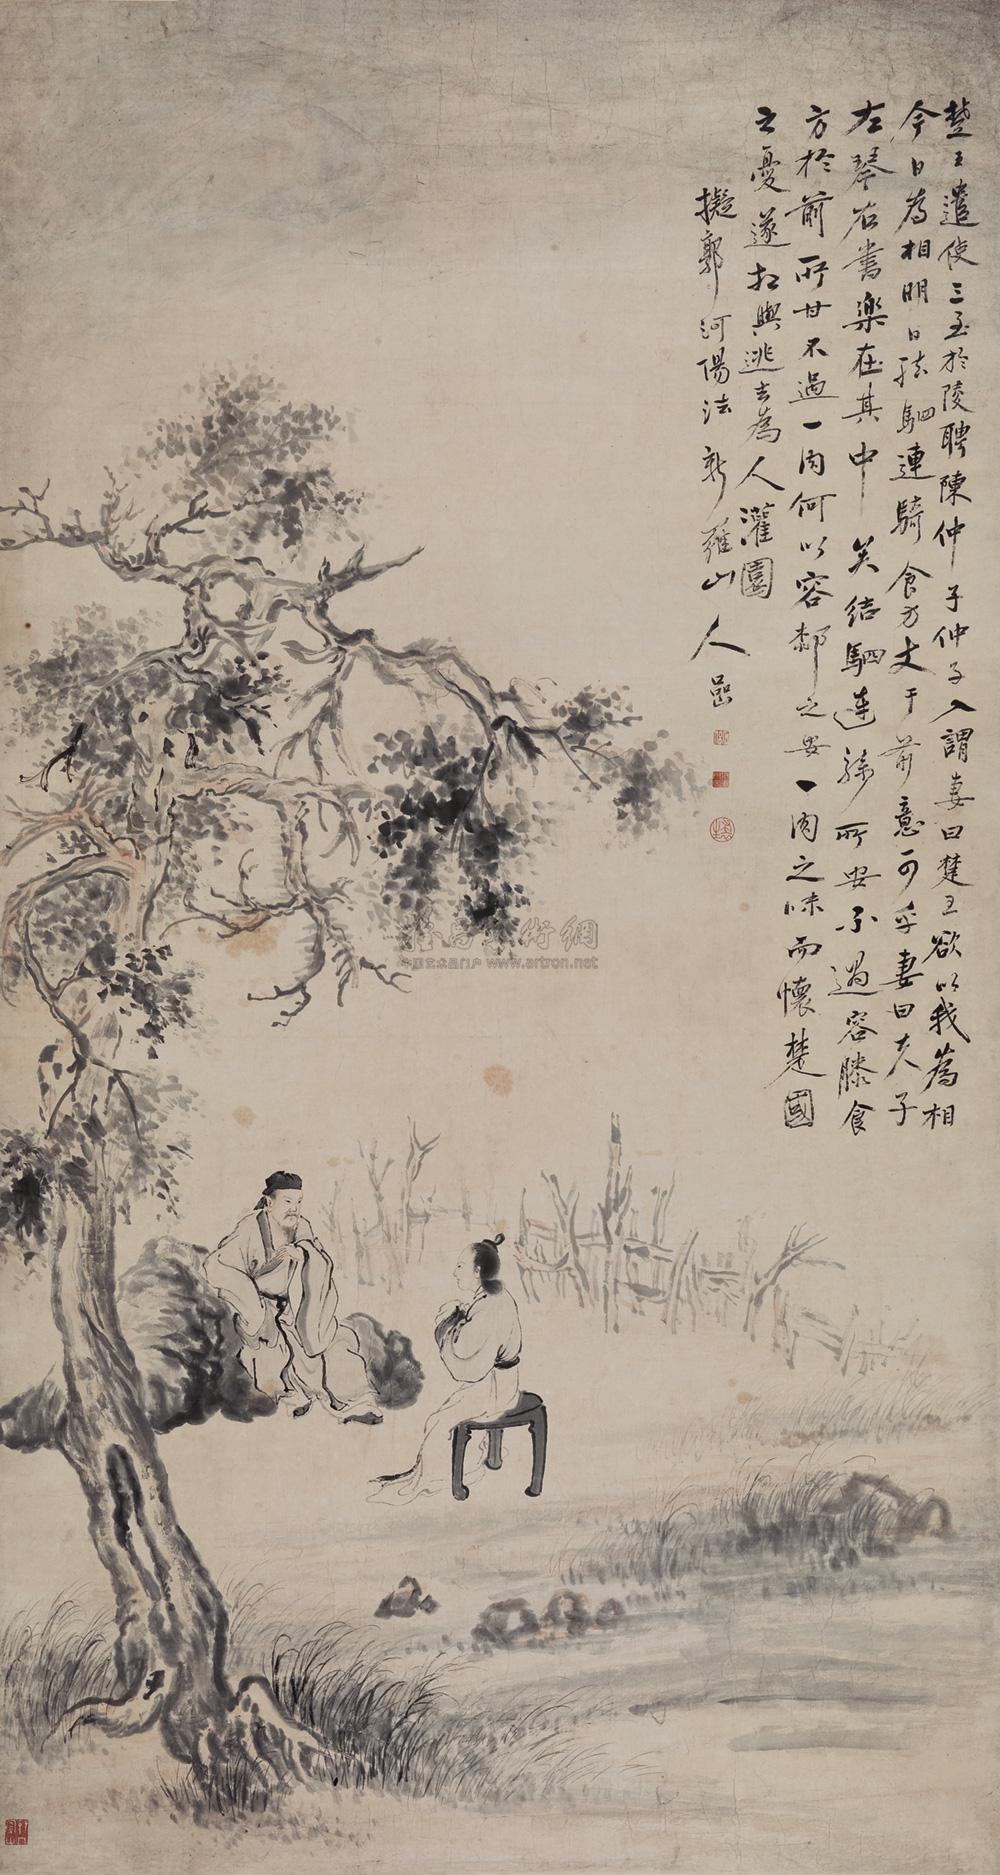 楚王遣使三至於陵聘陳仲子仲子入謂妻曰楚王欲以我為相
今日為相明日結駟連騎食方丈于前意可乎妻曰夫子
左琴右書樂在其中矣結駟連騎所安不過容膝食
方於前所甘不過一肉何以容鄰之安一肉之味而懷楚國
之憂遂相與逃去為人灌園
擬郭河陽法新羅山人嵒
雅昌藝術網
中国艺术品门户 www.artron.net